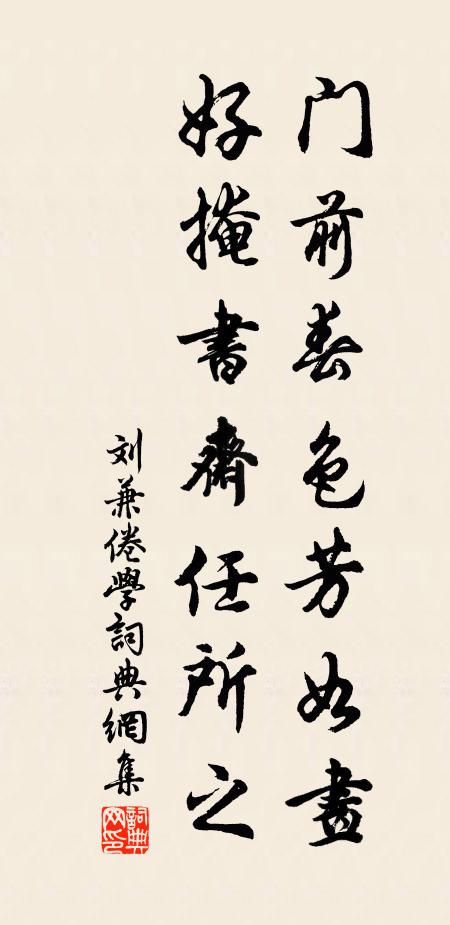 门前春色芳如畫
好掩書齋任所之
刘兼倦學詞典網集
詞典网印